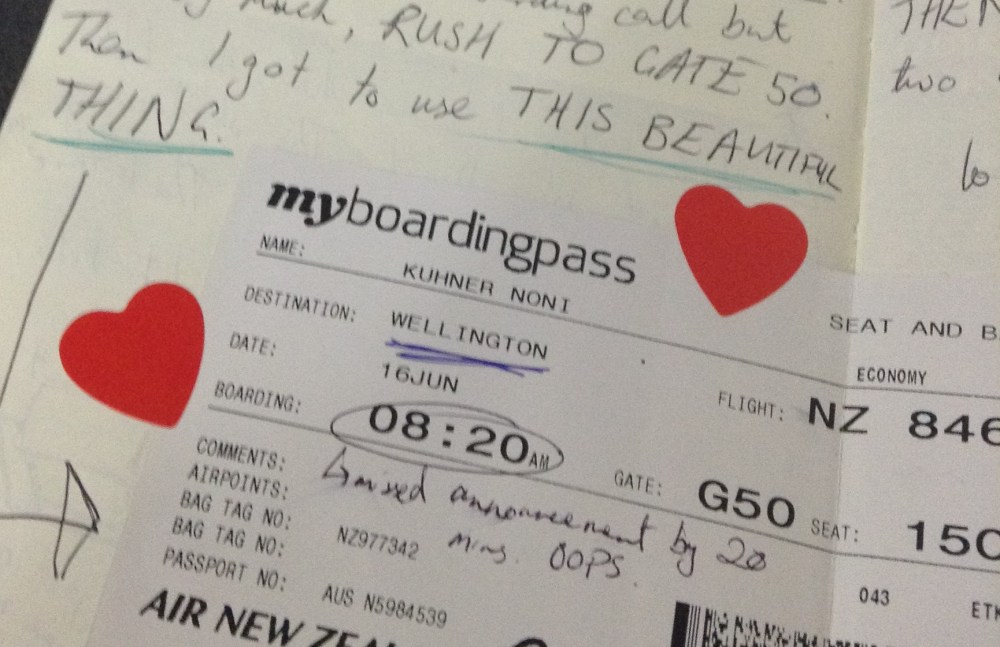 much, call but
RUSH TO GATE 50.
Then I got to use THIS BEAUTIFUL
THING.
THEN
two
to
myboardingpass
NAME: KUHNER NONI
SEAT AND B
DESTINATION: WELLINGTON
ECONOMY
DATE: 16JUN
FLIGHT: NZ 846
BOARDING: 08:20AM
GATE: G50 SEAT: 15C
COMMENTS: missed announcement by 20
mins. OOPS.
AIRPOINTS:
BAG TAG NO: NZ977342
BAG TAG NO:
PASSPORT NO: AUS N5984539
043 ETK
AIR NEW ZEA